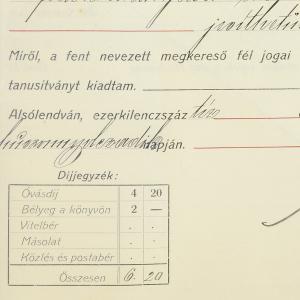 javíthatú
Miről, a fent nevezett megkereső fél jogai
tanusitványt kiadtam.
Alsólendván, ezerkilenczszáz tíz
huszonnyolczadik napján.
Díjjegyzék:
Óvásdíj 4 20
Bélyeg a könyvön 2 —
Vitelbér . .
Másolat . .
Közlés és postabér . .
Összesen 6. 20